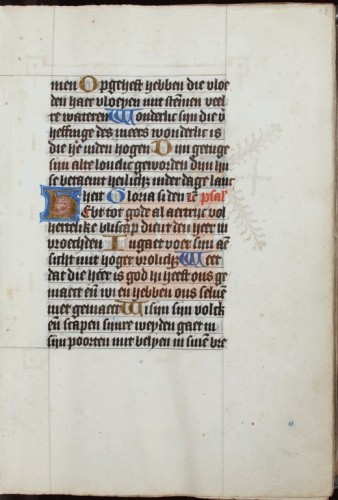 men Opgehest hebben die vloe
den haer vloeyen mit stemen veel
re wateren Wonderlic sijn die v̄
heffinge des meers wonderlic is
die h̄e inden hogen Dijn getuge
sijn alte loulic geworden dijn hu
se betaemt heilicheit inder dage lanc
heit Gloria si den vad̄ psal
tot gode al aertrijc vol
hertelike bliscap dient den heer in
vroechden Ingaet voer sijn aē
sicht mit hoger vrolich̄ Weet
dat die heer is god hi heeft ons ge
maect eñ wi en hebben ons seluē
niet gemaect Wi sijn sijn volck
eñ scapen sijnre weyden gaet in
sijn poorten mit belyen in sinē vre